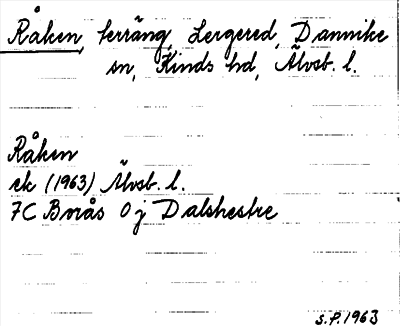 Råken, terräng, Lergered, Dannike
sn, Kinds hd, Älvsb. l.
Råken
ek (1963) Älvsb. l.
7C Borås 0 j Dalshestre
S.P. 1963